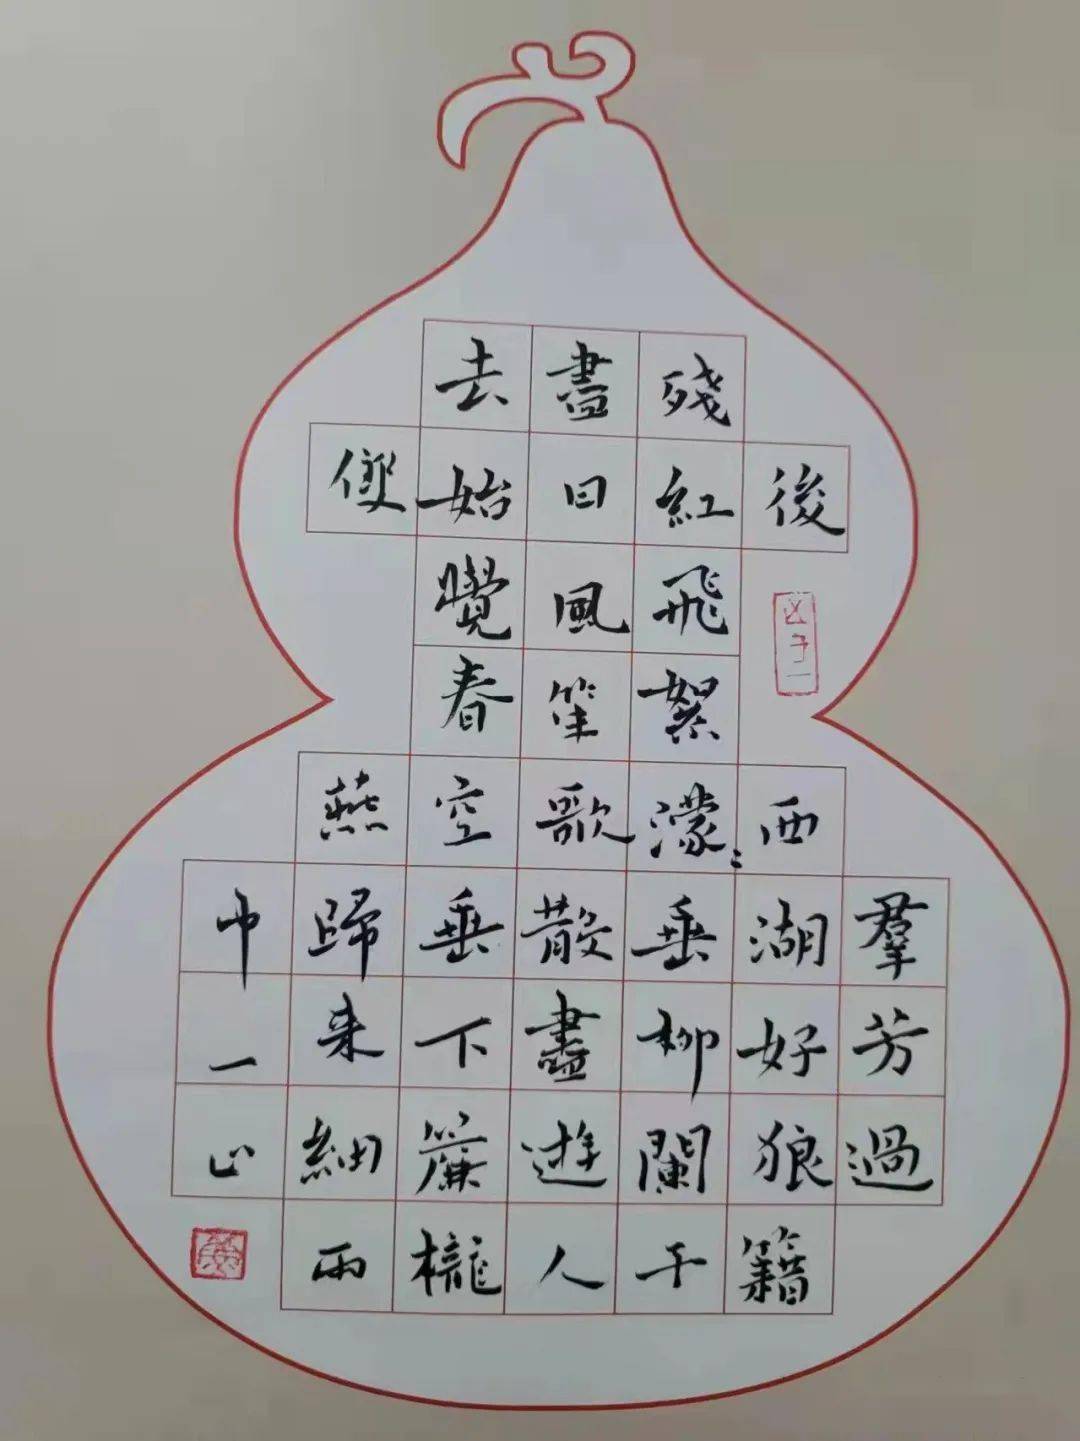 羣芳過
後西湖好狼籍
殘紅飛絮濛〻垂柳闌干
盡日風笙歌散盡遊人
去始覺春空垂下簾櫳
雙燕歸来細雨
中一